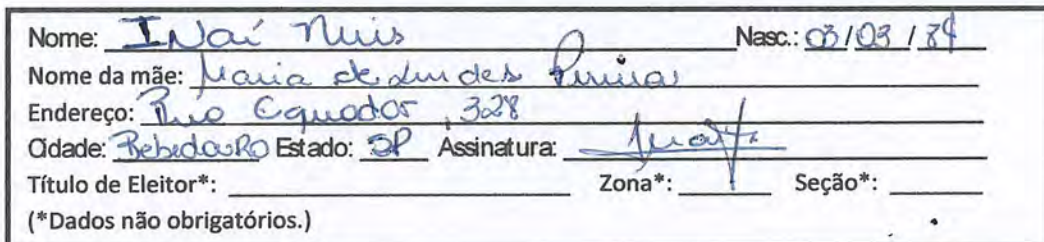 Nome: INaí Nuis Nasc.: 03/03/84
Nome da mãe: Maria de Lurdes
Endereço: Rua Equador, 328
Cidade: BebedouRo Estado: SP Assinatura:
Título de Eleitor*: Zona*: Seção*:
(*Dados não obrigatórios.)